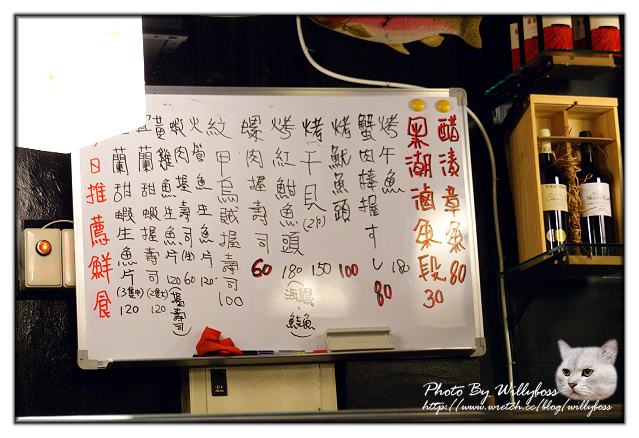 醋漬章魚80
果潮滷魚段30
烤午魚 180
蟹肉棒握すし 80
烤魷魚頭 100
烤干貝(2個) 150
烤紅魽魚頭 180
螺肉握壽司 60
紋甲烏賊握壽司 100
火管魚生魚片 120
蝦肉握壽司 60
黃雞魚生魚片 120 (握壽司)
宜蘭甜蝦握壽司 120
蘭甜蝦生魚片 (3隻) 120
今日推薦鮮食
Photo By Willyboss
http://www.wretch.cc/blog/willyboss